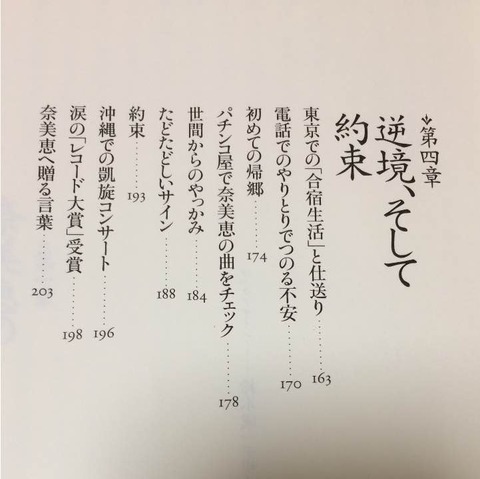 第四章
逆境、そして
約束
東京での「合宿生活」と仕送り………163
電話でのやりとりでつのる不安………170
初めての帰郷………174
パチンコ屋で奈美恵の曲をチェック………178
世間からのやっかみ………184
たどたどしいサイン………188
約束………193
沖縄での凱旋コンサート………196
涙の「レコード大賞」受賞………198
奈美恵へ贈る言葉………203